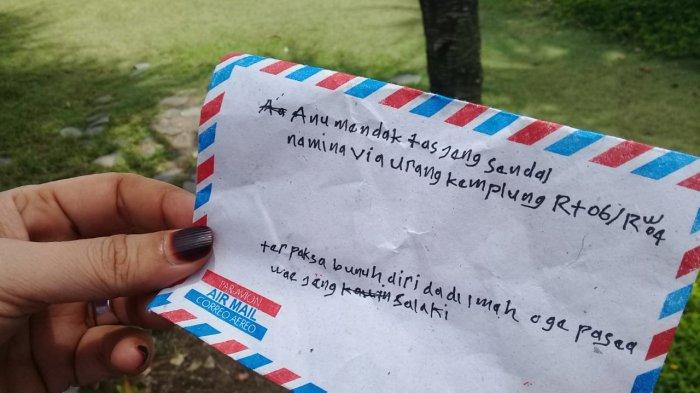 Aa Anu mendak tas jeng Sendal
namina Via urang kemplung Rt 06/Rw 04
terpaksa bunuh diri da di imah oge pasea
wae jeng kawin Salaki
PAR AVION
AIR MAIL
CORREO AEREO